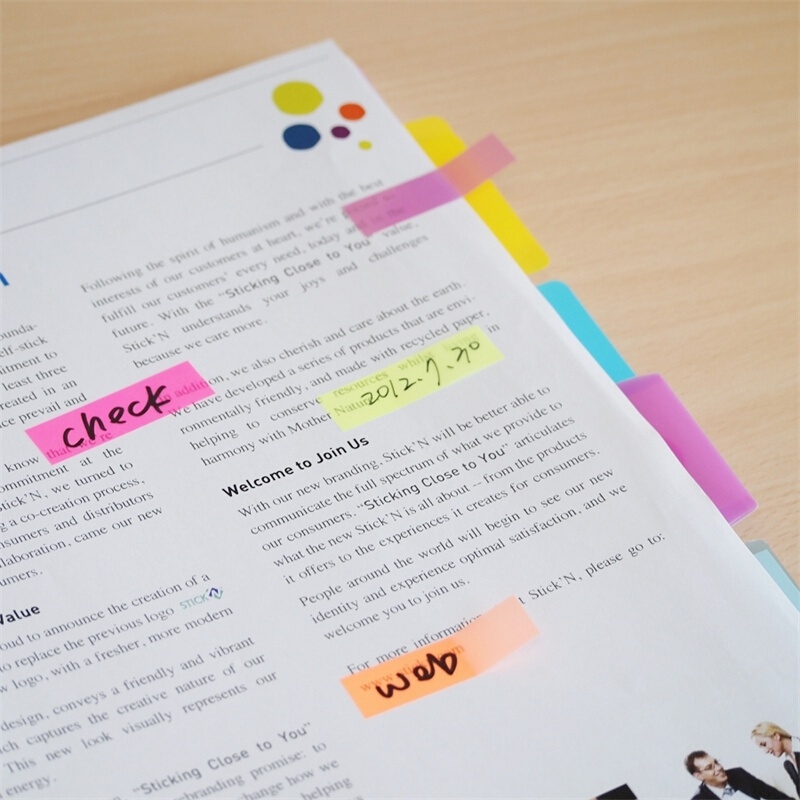 ounda-
elf-stick
itment to
least three
reated in an
ce prevail and
check
know that we're
ommitment at the
tick'N, we turned to
g a co-creation process,
nsumers and distributors
llaboration, came our new
umers.
Value
oud to announce the creation of a
to replace the previous logo STICK'N
w logo, with a fresher, more modern
design, conveys a friendly and vibrant
ch captures the creative nature of our
This new look visually represents our
energy.
"Sticking Close to You"
ebranding promise: to
change how we
helping
Following the spirit of humanism and with the best
interests of our customers at heart, we're
fulfill our customers' every need, today and in the
future. With the "Sticking Close to You" value,
Stick'N understands your joys and challenges
because we care more.
In addition, we also cherish and care about the earth.
We have developed a series of products that are envi-
ronmentally friendly, and made with recycled paper,
helping to conserve resources whilst in
harmony with Mother Nature.
2012.7.30
Welcome to Join Us
With our new branding, Stick'N will be better able to
communicate the full spectrum of what we provide to
our consumers. "Sticking Close to You" articulates
what the new Stick'N is all about – from the products
it offers to the experiences it creates for consumers.
People around the world will begin to see our new
identity and experience optimal satisfaction, and we
welcome you to join us.
For more information Stick'N, please go to:
web